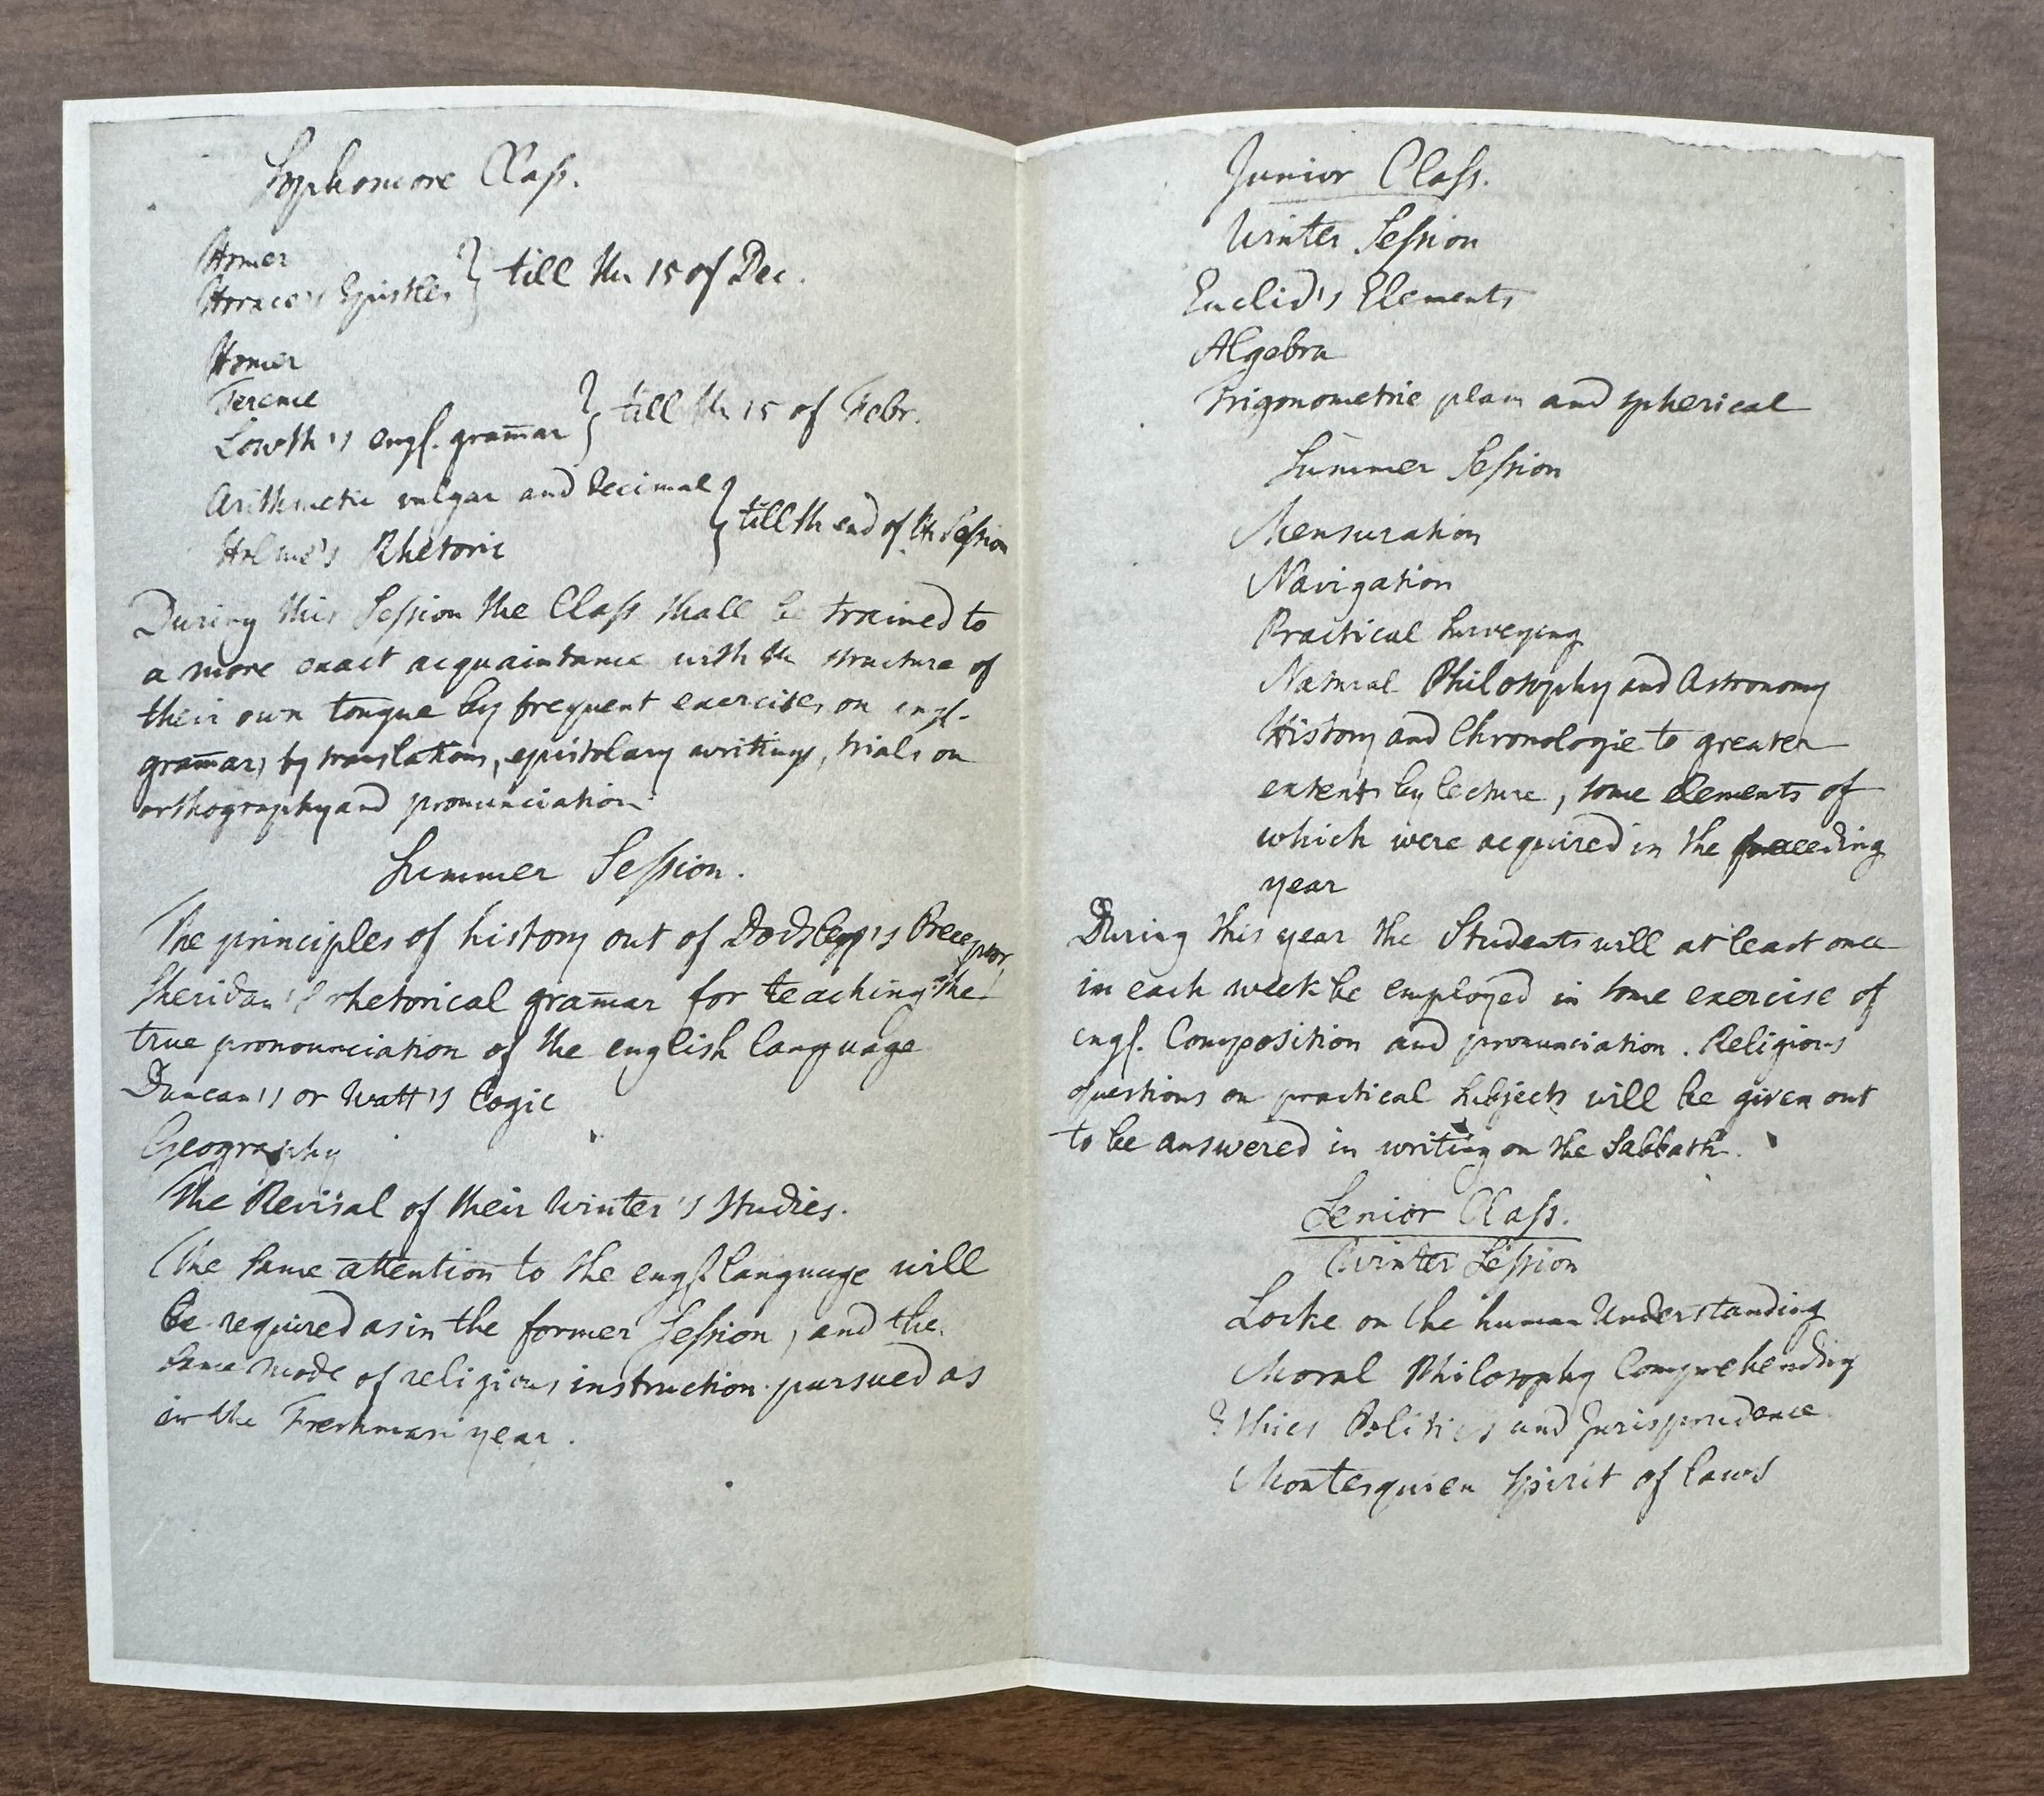 Sophomore Class.
Homer
Horace's Epistles } till the 15 of Dec.
Homer
Terence
Lowth's engl. gram̄ar } till the 15 of Febr.
Arithmetic vulgar and Decimal
Holme's Rhetoric } till the end of the Session
During this Session the Class shall be trained to
a more exact acquaintance with the structure of
their own tongue by frequent exercises on engl.
gram̄ar, by translations, epistolary writings, trials on
orthography and pronunciation
Summer Session.
The principles of history out of Dodsley's Preceptor
Sheridan's rhetorical gram̄ar for teaching the
true pronounciation of the english language
Duncan's or Watt's Logic
Geography
The Revisal of their Winter's Studies.
The same attention to the engl. language will
be required as in the former Session, and the
same mode of religious instruction pursued as
in the Freshman year.
Junior Class.
Winter Session
Euclid's Elements
Algebra
Trigonometrie plain and spherical
Summer Session
Mensuration
Navigation
Practical Surveying
Natural Philosophy and Astronomy
History and Chronologie to greater
extent by lecture, some elements of
which were acquired in the preceeding
year
During this year the Students will at least once
in each week be employed in some exercise of
engl. Composition and pronunciation. Religious
questions on practical Subjects will be given out
to be answered in writing on the Sabbath.
Senior Class.
Winter Session
Locke on the human Understanding
Moral Philosophy Comprehending
Ethics Politics and Jurisprudence
Montesquieu Spirit of Laws